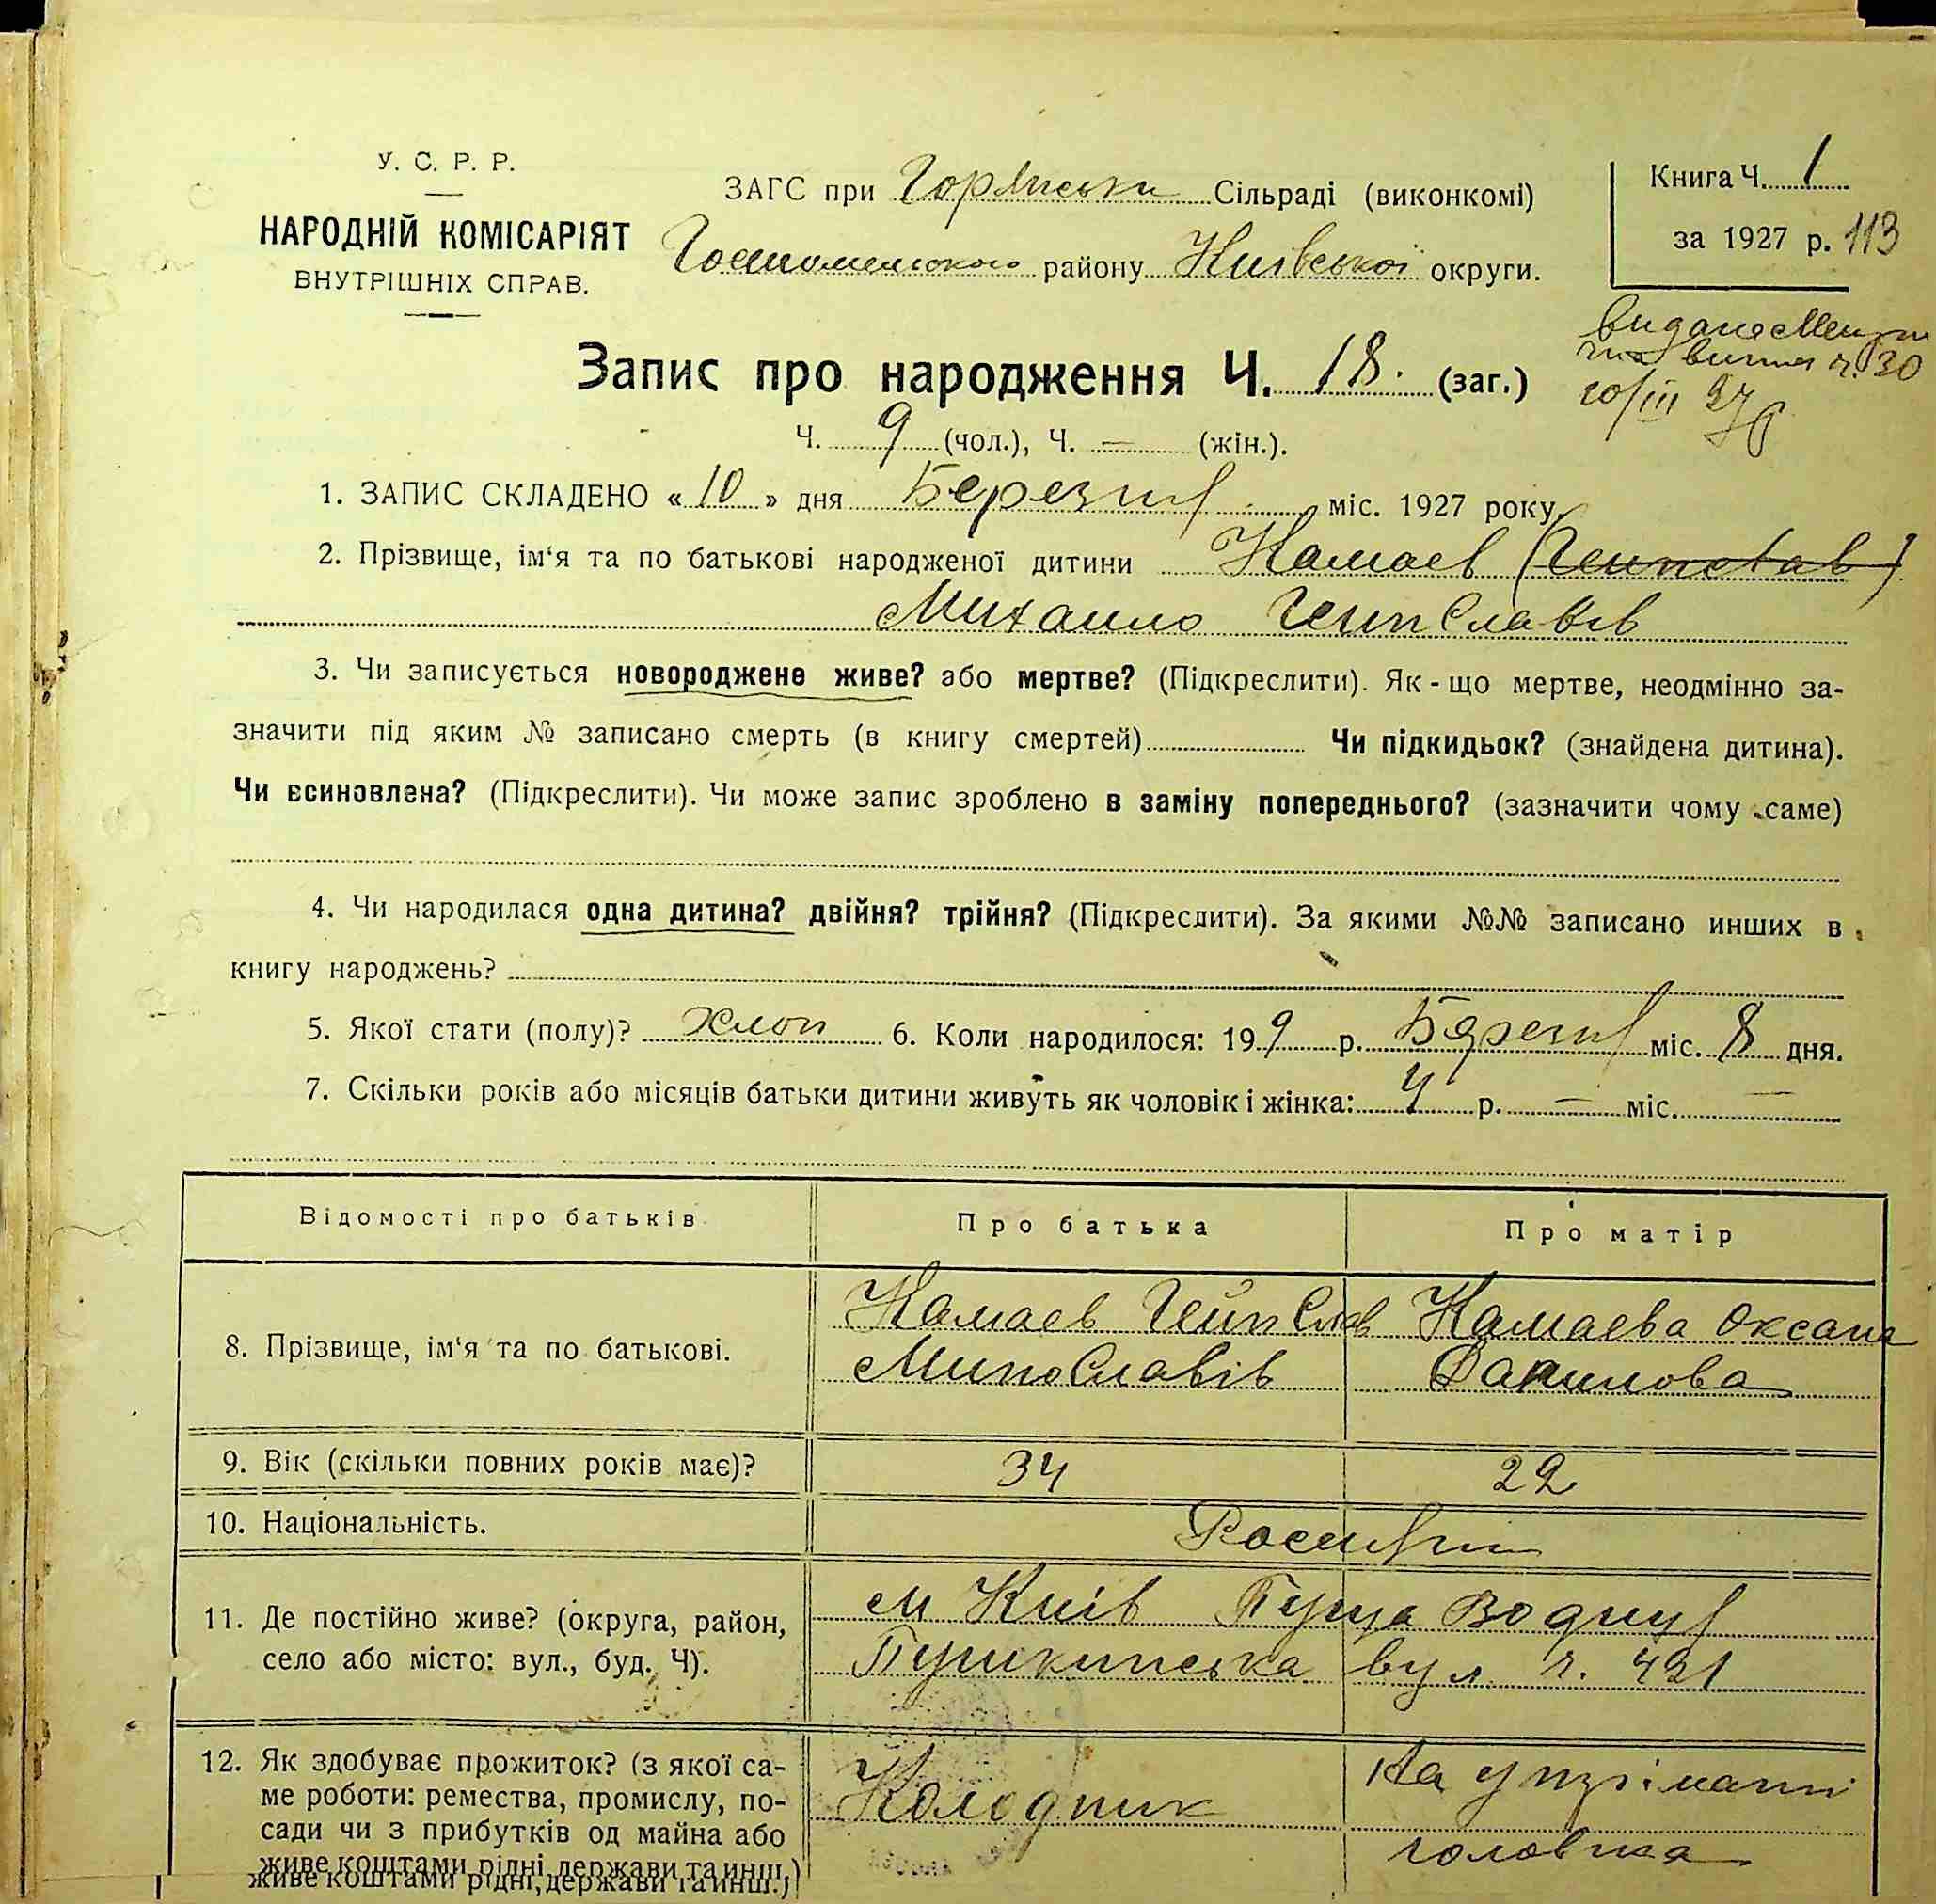 У. С. Р. Р.
НАРОДНІЙ КОМІСАРІЯТ
ВНУТРІШНІХ СПРАВ.
ЗАГС при Горянськи Сільраді (виконкомі)
Гостомельського району Київської округи.
Книга Ч. 1
за 1927 р. 113
видано
ч. 30
10/III 27
Запис про народження Ч. 18. (заг.)
Ч. 9 (чол.), Ч. — (жін.).
1. ЗАПИС СКЛАДЕНО « 10 » дня Березня міс. 1927 року.
2. Прізвище, ім'я та по батькові народженої дитини Камаев
Михаило
3. Чи записується новороджене живе? або мертве? (Підкреслити). Як-що мертве, неодмінно за-
значити під яким № записано смерть (в книгу смертей) Чи підкидьок? (знайдена дитина).
Чи всиновлена? (Підкреслити). Чи може запис зроблено в заміну попереднього? (зазначити чому саме)
4. Чи народилася одна дитина? двійня? трійня? (Підкреслити). За якими №№ записано инших в
книгу народжень?
5. Якої стати (полу)? хлоп 6. Коли народилося: 19 р. Березня міс. 8 дня.
7. Скільки років або місяців батьки дитини живуть як чоловік і жінка: 4 р. — міс. —
Відомості про батьків
Про батька
Про матір
8. Прізвище, ім'я та по батькові.
Камаев
Камаева Оксана
Данилова
9. Вік (скільки повних років має)?
34
22
10. Національність.
11. Де постійно живе? (округа, район,
село або місто: вул., буд. Ч).
м Київ Пуща Водиця
Пушкинська вул ч. 421
12. Як здобуває прожиток? (з якої са-
ме роботи: ремества, промислу, по-
сади чи з прибутків од майна або
живе коштами рідні, держави та инш.)
Колодник
На утріманні
головика
живе коштами рідні, держави та инш.)